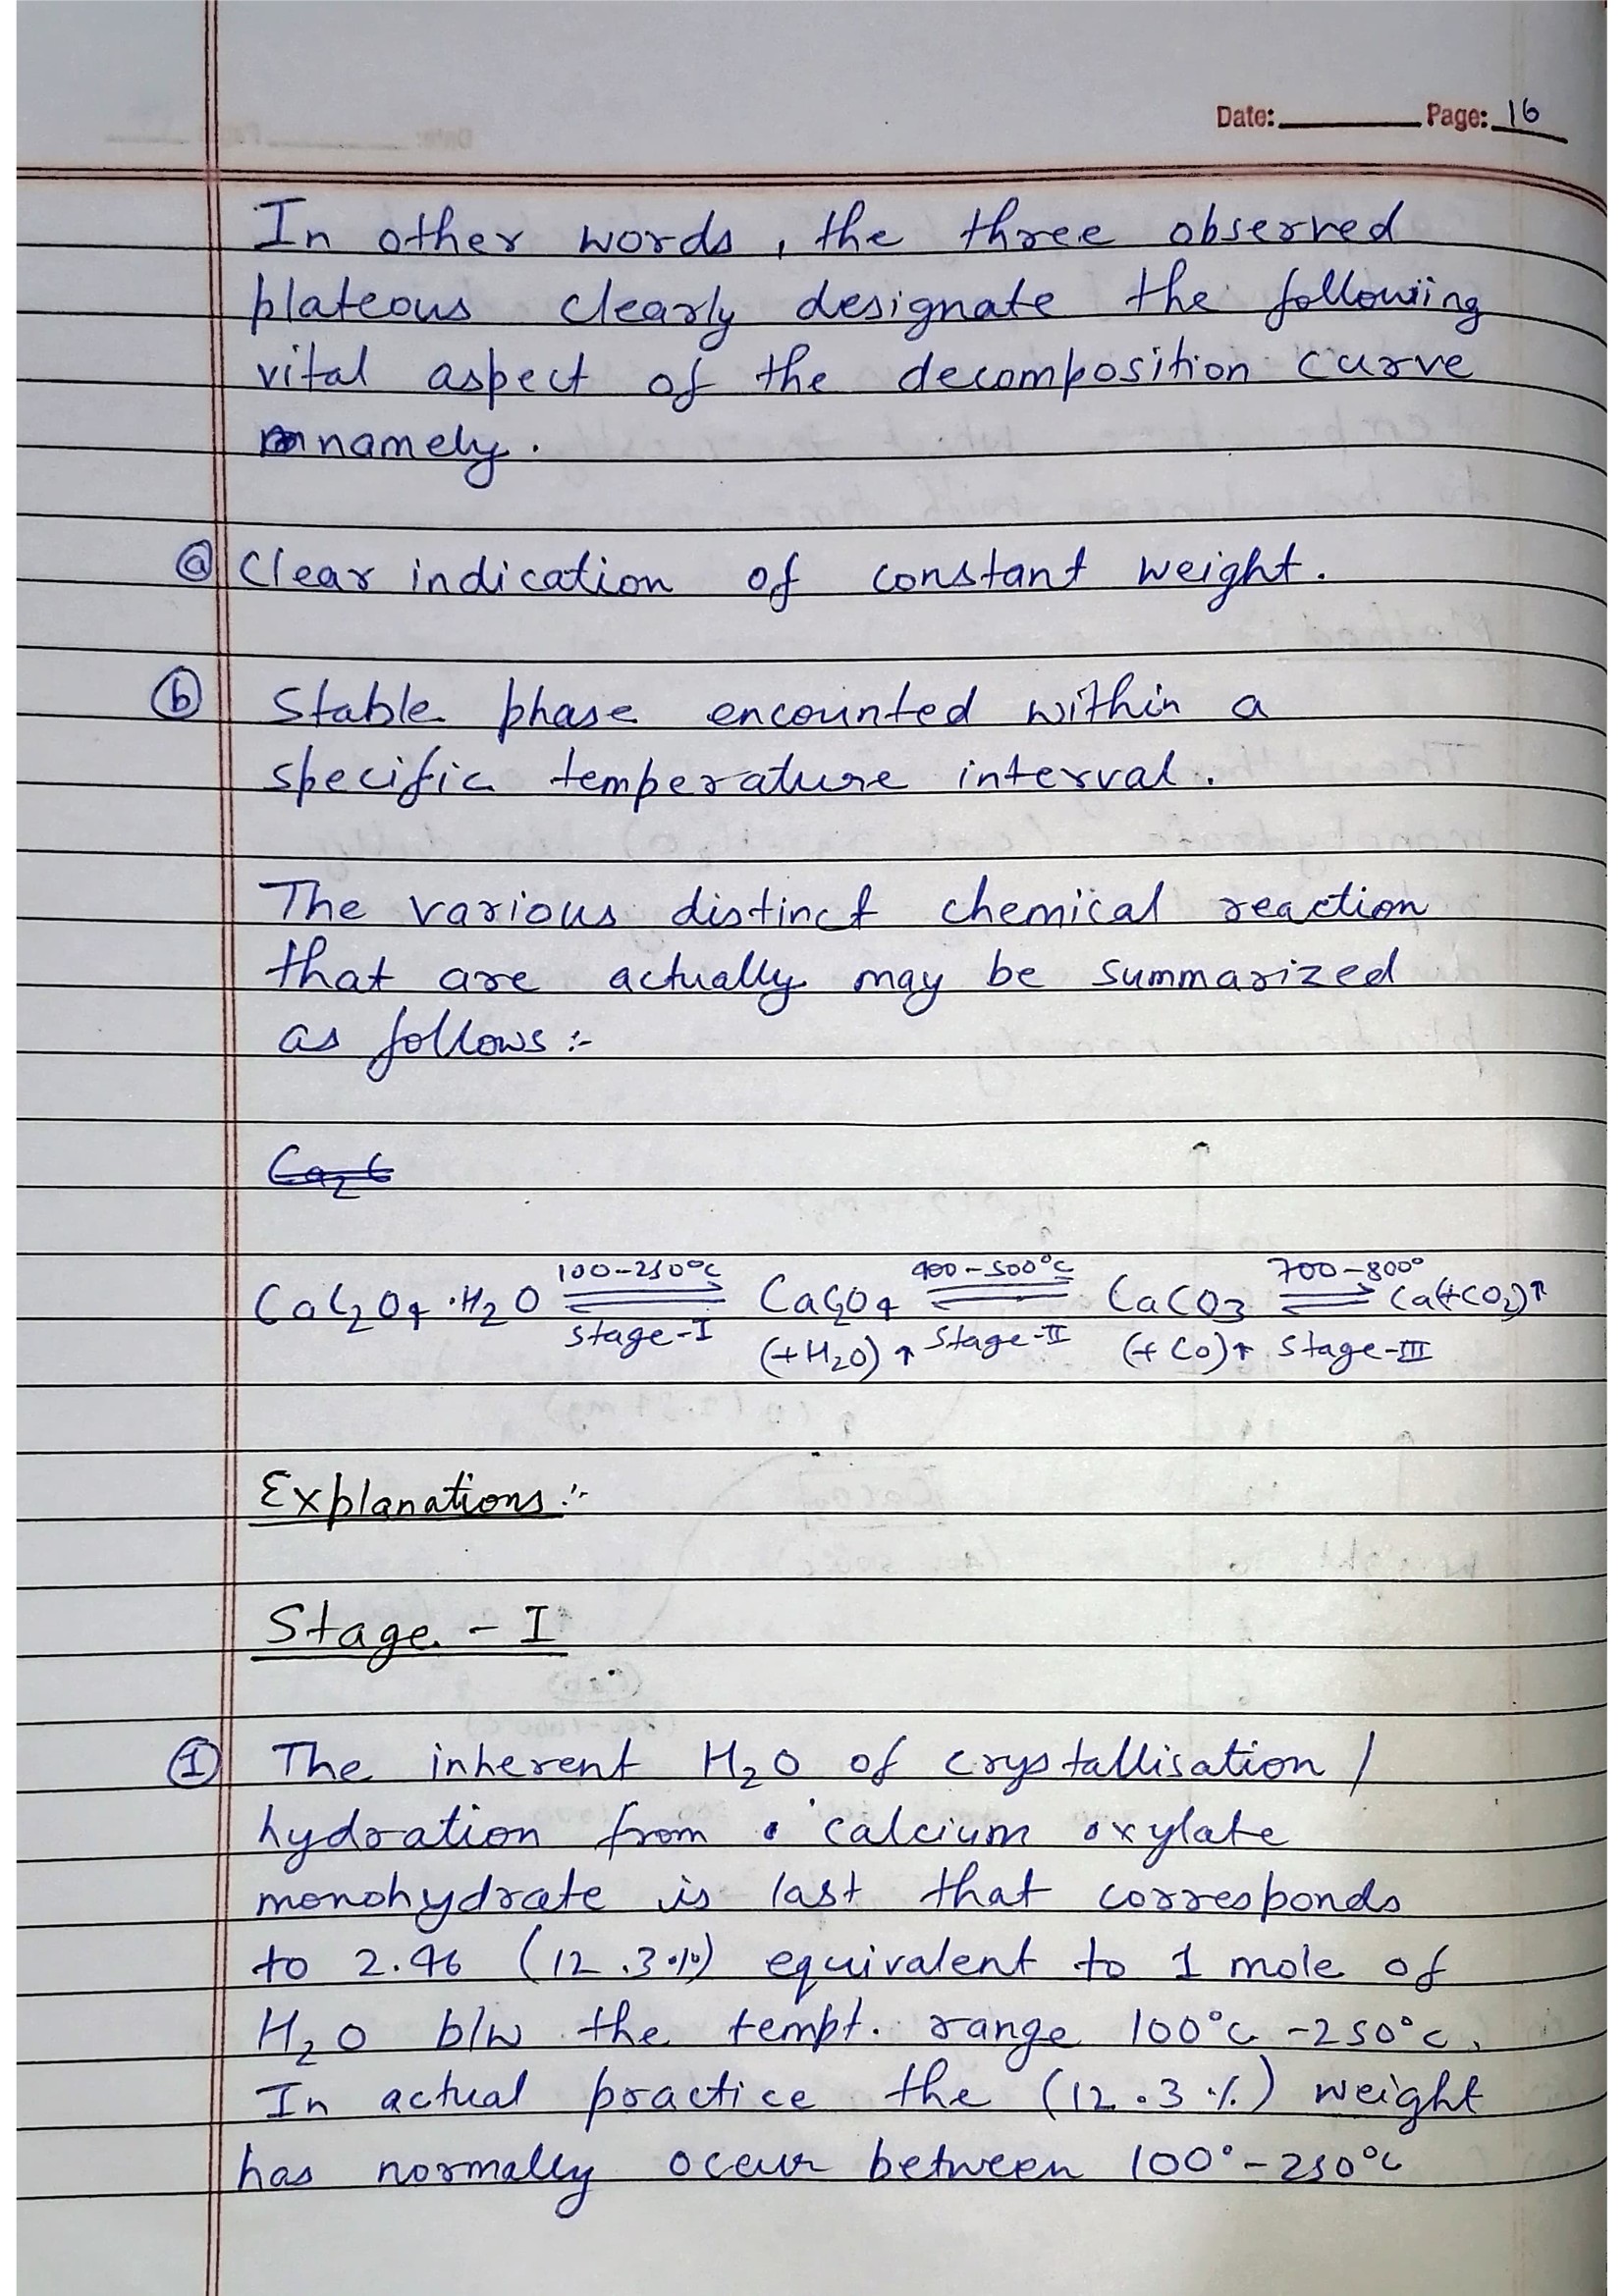 Date: Page: 16
In other words, the three observed
plateous clearly designate the following
vital aspect of the decomposition curve
namely.
ⓐ Clear indication of constant weight.
ⓑ Stable phase encounted within a
specific temperature interval.
The various distinct chemical reaction
that are actually may be summarized
as follows :-
100-250°C 400-500°C 700-800°
CaC2O4 .H2O ⇌ CaC2O4 ⇌ CaCO3 ⇌ Ca(+CO2)↑
Stage-I (+H2O)↑ Stage-II (+CO)↑ Stage-III
Explanations :-
Stage - I
① The inherent H2O of crystallisation /
hydration from calcium oxylate
monohydrate is last that corresponds
to 2.46 (12.3%) equivalent to 1 mole of
H2O b/w the tempt. range 100°C - 250°C.
In actual practice the (12.3%) weight
has normally occur between 100°-250°C